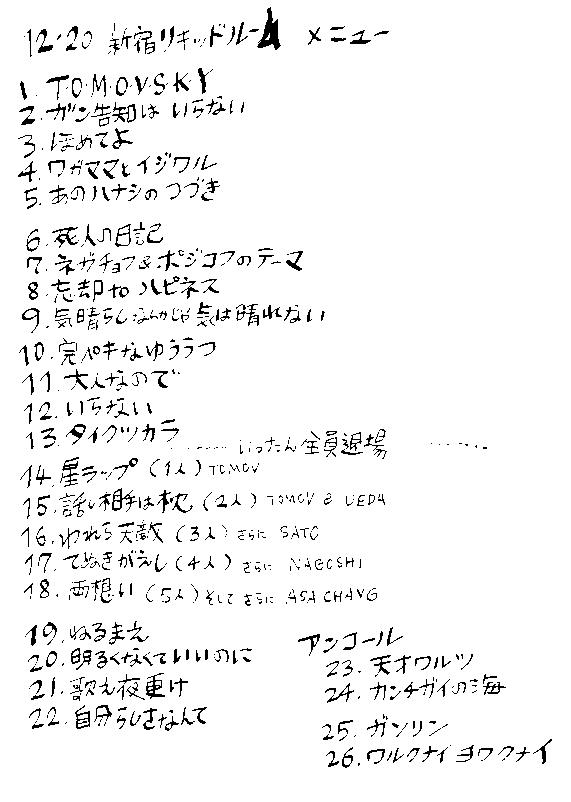 12・20 新宿リキッドルーム メニュー
1. T・O・M・O・V・S・K・Y
2. ガン告知は いらない
3. ほめてよ
4. ワガママとイジワル
5. あのハナシのつづき
6. 死人の日記
7. ネガチョフ&ポジコフのテーマ
8. 忘却 to ハピネス
9. 気晴らしなんかじゃ気は晴れない
10. 完パキなゆううつ
11. 大人なので
12. いらない
13. タイクツカラ
‥‥‥ いったん全員退場 ‥‥‥
14. 星ラップ (1人) TOMOV
15. 話し相手は枕 (2人) TOMOV & UEDA
16. われら天敵 (3人) さらに SATO
17. てぬきがえし (4人) さらに NAGOSHI
18. 両想い (5人) そして さらに ASA CHANG
19. ねるまえ
20. 明るくなくていいのに
21. 歌え夜更け
22. 自分らしさなんて
アンコール
23. 天才ワルツ
24. カンチガイの海
25. ガソリン
26. ワルクナイ ヨワクナイ